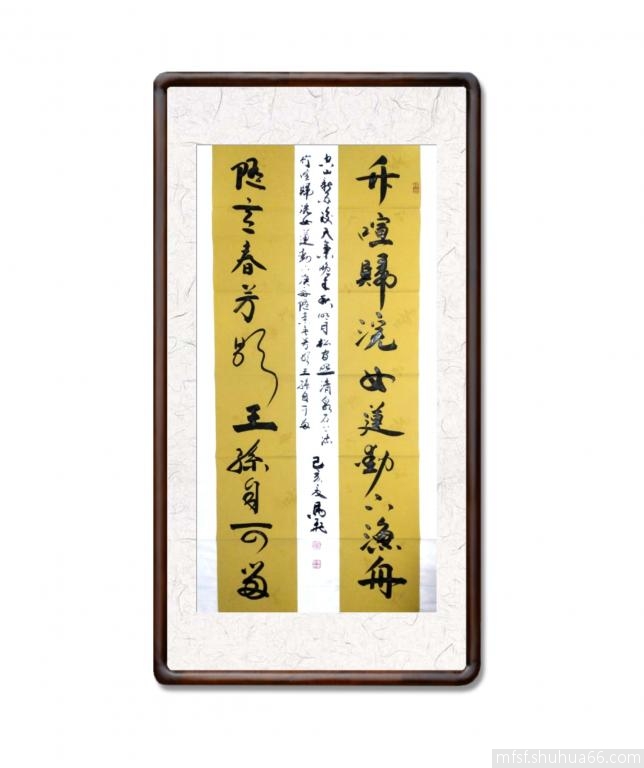 竹喧歸浣女蓮動下漁舟
空山新雨後天氣晚來秋明月松間照清泉石上流
竹喧歸浣女蓮動下漁舟隨意春芳歇王孫自可留
己亥夏
隨意春芳歇王孫自可留
mfsf.shuhua66.com